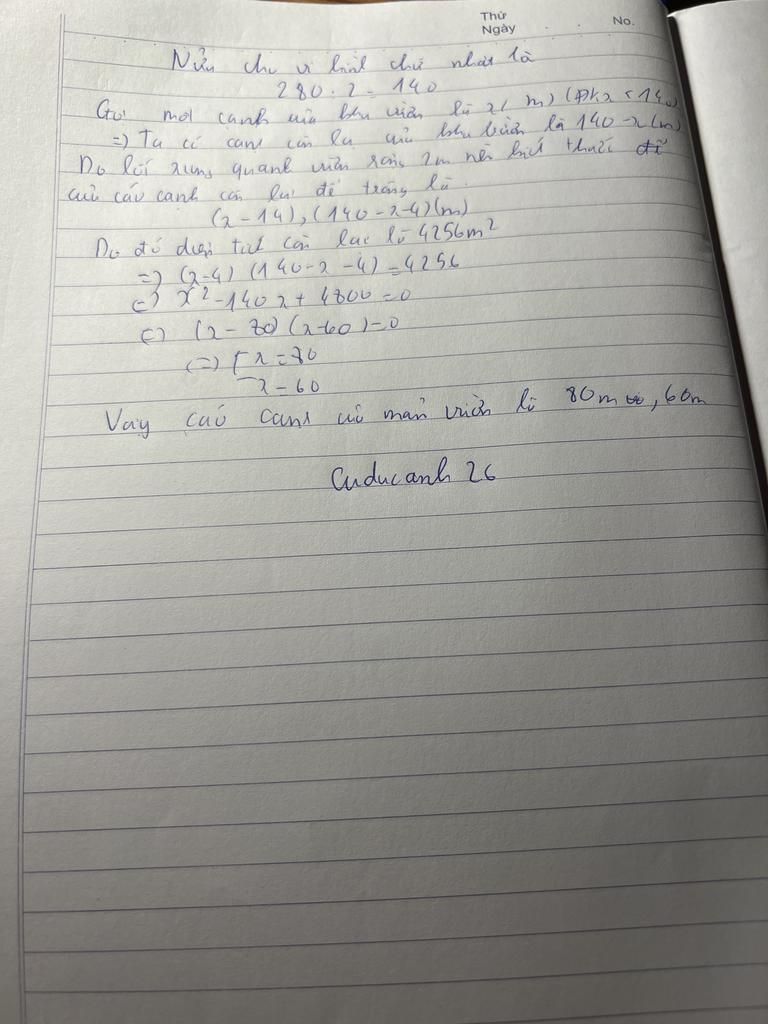 Thứ
Ngày . . . No.
Nửa chu vi hình chữ nhật là
280 . 2 = 140
Gọi một cạnh của khu vườn là x( m) (ĐK x < 140)
=) Ta có cạnh còn lại của khu vườn là 140 - x(m)
Do lối xung quanh vườn rộng 2m nên kích thước để
của các cạnh còn lại để trồng là
(x - 14), (140 - x - 4)(m)
Do đó diện tích còn lại là 4256m²
=) (x-4) (140 - x - 4) = 4256
(=) x² - 140x + 4800 = 0
(=) (x - 80) (x-60) = 0
(=) [ x = 80
x = 60
Vậy các cạnh của mảnh vườn là 80m , 60m
Cuducanh 26